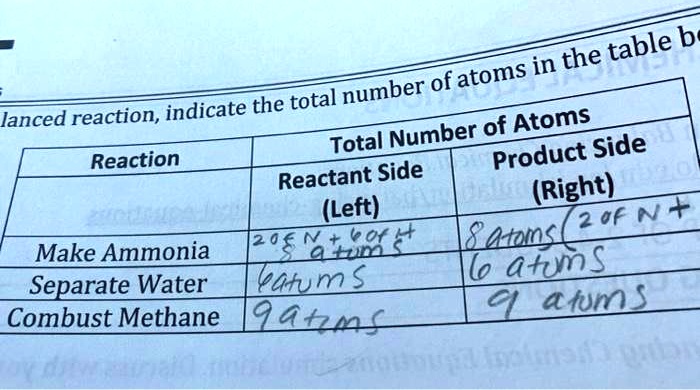 lanced reaction, indicate the total number of atoms in the table b
Reaction
Total Number of Atoms
Reactant Side
(Left)
Product Side
(Right)
Make Ammonia
2 of N + 6 of H
8 atoms
8 atoms (2 of N +
Separate Water
6 atoms
6 atoms
Combust Methane
9 atoms
9 atoms